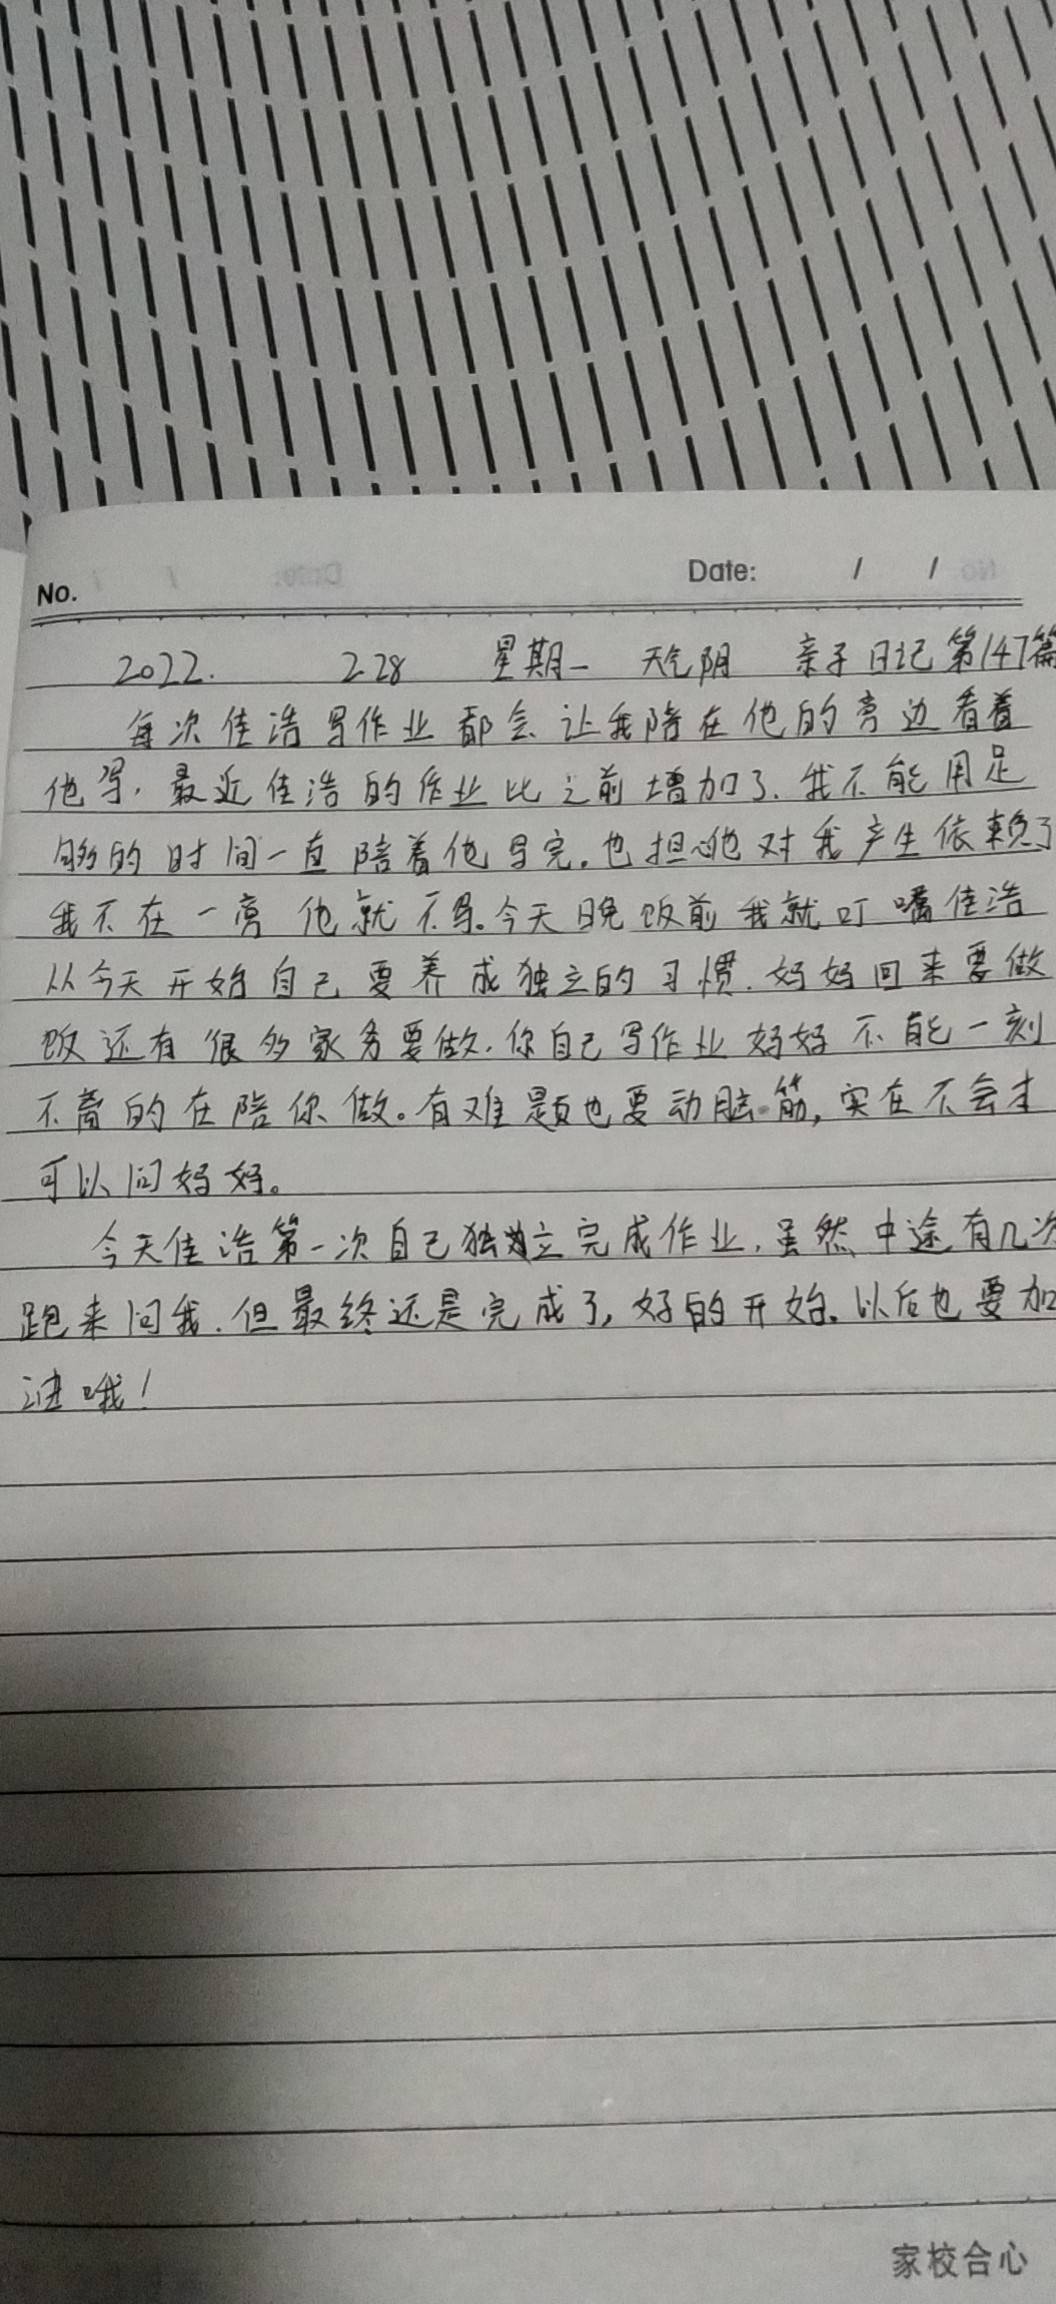 No.
Date: / /
2022. 2.28 星期一 天气阴 亲子日记第147篇
每次佳浩写作业都会让我陪在他的旁边看着
他写,最近佳浩的作业比之前增加了.我不能用足
够的时间一直陪着他写完.也担心他对我产生依赖了
我不在一旁他就不写。今天晚饭前我就叮嘱佳浩
从今天开始自己要养成独立的习惯.妈妈回来要做
饭还有很多家务要做.你自己写作业妈妈不能一刻
不离的在陪你做。有难题也要动脑筋,实在不会才
可以问妈妈。
今天佳浩第一次自己独立完成作业,虽然中途有几次
跑来问我.但最终还是完成了,好的开始.以后也要加
油哦!
家校合心